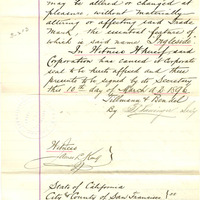 may be altered or changed at
pleasure without materially
altering or affecting said Trade
Mark, the essential feature of
which is said name Ingleside.
In Witness Whereof said
Corporation has caused its Corporate
seal to be hereto affixed and these
presents to be signed by its Secretary
this 18th day of April A.D. 1896.
Tillmann & Bendel
By
Witness
State of California
City & County of San Francisco } ss